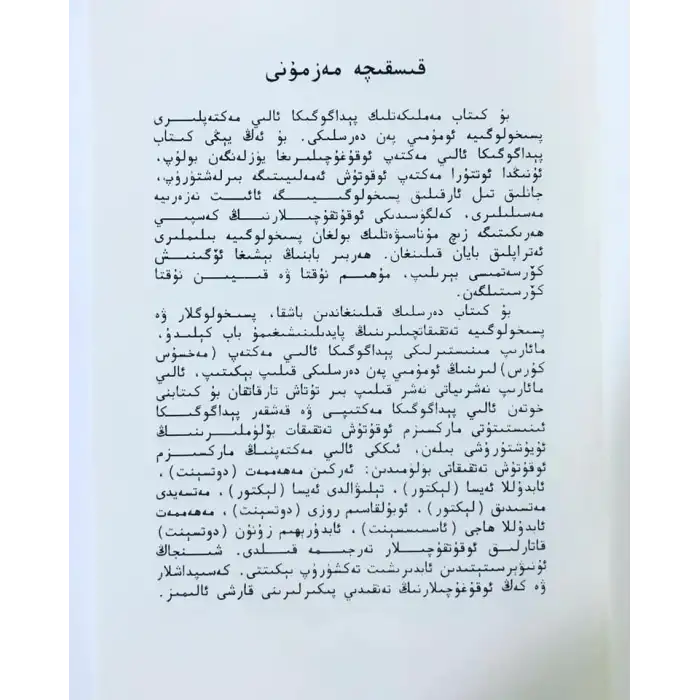 قىسقىچە مەزمۇنى
بۇ كىتاب مەملىكەتلىك پېداگوگىكا ئالىي مەكتەپلىرى
پسىخولوگىيە ئومۇمىي پەن دەرسلىكى. بۇ ئەڭ يېڭى كىتاب
پېداگوگىكا ئالىي مەكتەپ ئوقۇغۇچىلىرىغا يۈزلەنگەن بولۇپ،
ئۇنىڭدا ئوتتۇرا مەكتەپ ئوقۇتۇش ئەمەلىيىتىگە بىرلەشتۈرۈپ،
جانلىق تىل ئارقىلىق پسىخولوگىيىگە ئائىت نەزەرىيە
مەسىلىلىرى، كەلگۈسىدىكى ئوقۇتقۇچىلارنىڭ كەسپىي
ھەرىكىتىگە زىچ مۇناسىۋەتلىك بولغان پسىخولوگىيە بىلىملىرى
ئەتراپلىق بايان قىلىنغان. ھەربىر بابنىڭ بېشىغا ئۆگىنىش
كۆرسەتمىسى بېرىلىپ، مۇھىم نۇقتا ۋە قىيىن نۇقتا
كۆرسىتىلگەن.
بۇ كىتاب دەرسلىك قىلىنغاندىن باشقا، پسىخولوگلار ۋە
پسىخولوگىيە تەتقىقاتچىلىرىنىڭ پايدىلىنىشىغىمۇ باب كېلىدۇ،
مائارىپ مىنىستىرلىكى پېداگوگىكا ئالىي مەكتەپ (مەخسۇس
كۇرس)لىرىنىڭ ئومۇمىي پەن دەرسلىكى قىلىپ بېكىتىپ، ئالىي
مائارىپ نەشرىياتى نەشر قىلىپ بىر تۇتاش تارقاتقان بۇ كىتابنى
خوتەن ئالىي پېداگوگىكا مەكتىپى ۋە قەشقەر پېداگوگىكا
ئىنىستىتۇتى ماركسىزم ئوقۇتۇش تەتقىقات بۆلۈملىرىنىڭ
ئۇيۇشتۇرۇشى بىلەن، ئىككى ئالىي مەكتەپنىڭ ماركسىزم
ئوقۇتۇش تەتقىقاتى بۆلۈمىدىن: ئەركىن مەھەممەت (دوتسېنت)،
ئابدۇللا ئەيسا (لېكتور)، تېلىۋالدى ئەيسا (لېكتور)، مەتسەيدى
مەتسىدىق (لېكتور)، ئوبۇلقاسىم روزى (دوتسېنت)، مەھەممەت
ئابدۇللا ھاجى (ئاسسىستېنت)، ئابدۇرېھىم زۇنۇن (دوتسېنت)
قاتارلىق ئوقۇتقۇچىلار تەرجىمە قىلدى. شىنجاڭ
ئۇنىۋېرسىتېتىدىن ئابدىرىشىت تەكشۈرۈپ بېكىتتى. كەسىپداشلار
ۋە كەڭ ئوقۇغۇچىلارنىڭ تەنقىدىي پىكىرلىرىنى قارشى ئالىمىز.